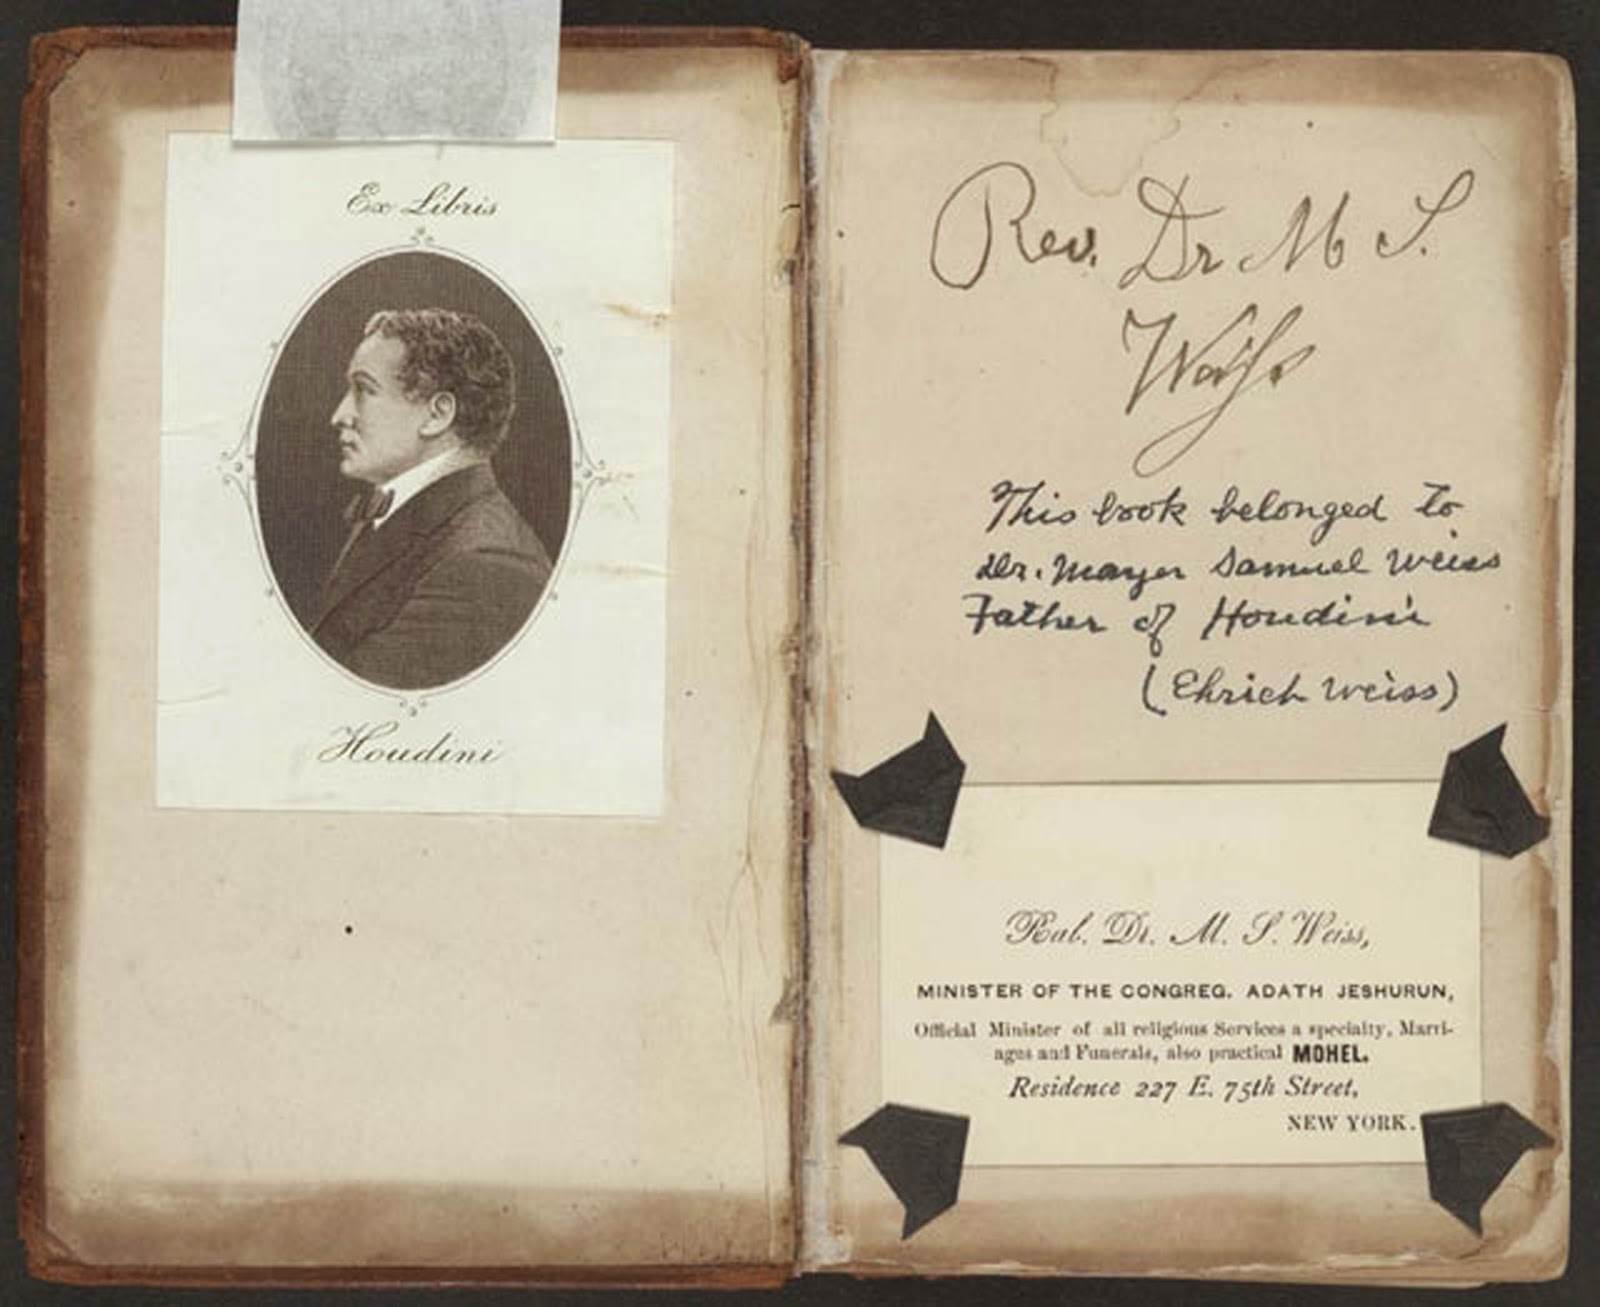 Ex Libris
Houdini
Rev. Dr M S.
Weiss
This book belonged to
Dr. Mayer Samuel Weiss
Father of Houdini
(Ehrich Weiss)
Rab. Dr. M. S. Weiss,
MINISTER OF THE CONGREG. ADATH JESHURUN,
Official Minister of all religious Services a specialty, Marri-
ages and Funerals, also practical MOHEL.
Residence 227 E. 75th Street,
NEW YORK.